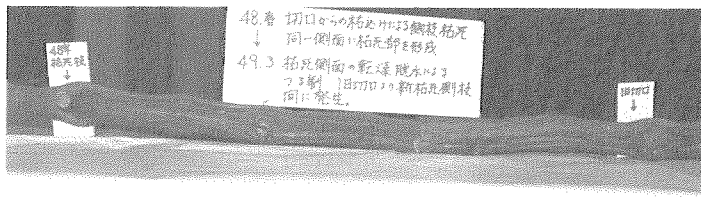 48.春 切口からの枯込みによる側枝枯死
↓ 同一側面に枯死部を形成
49.3 枯死側面の乾燥脱水による
つる割 旧切口より新枯死側枝
間に発生。
48年
枯死枝
↓
旧切口
↓